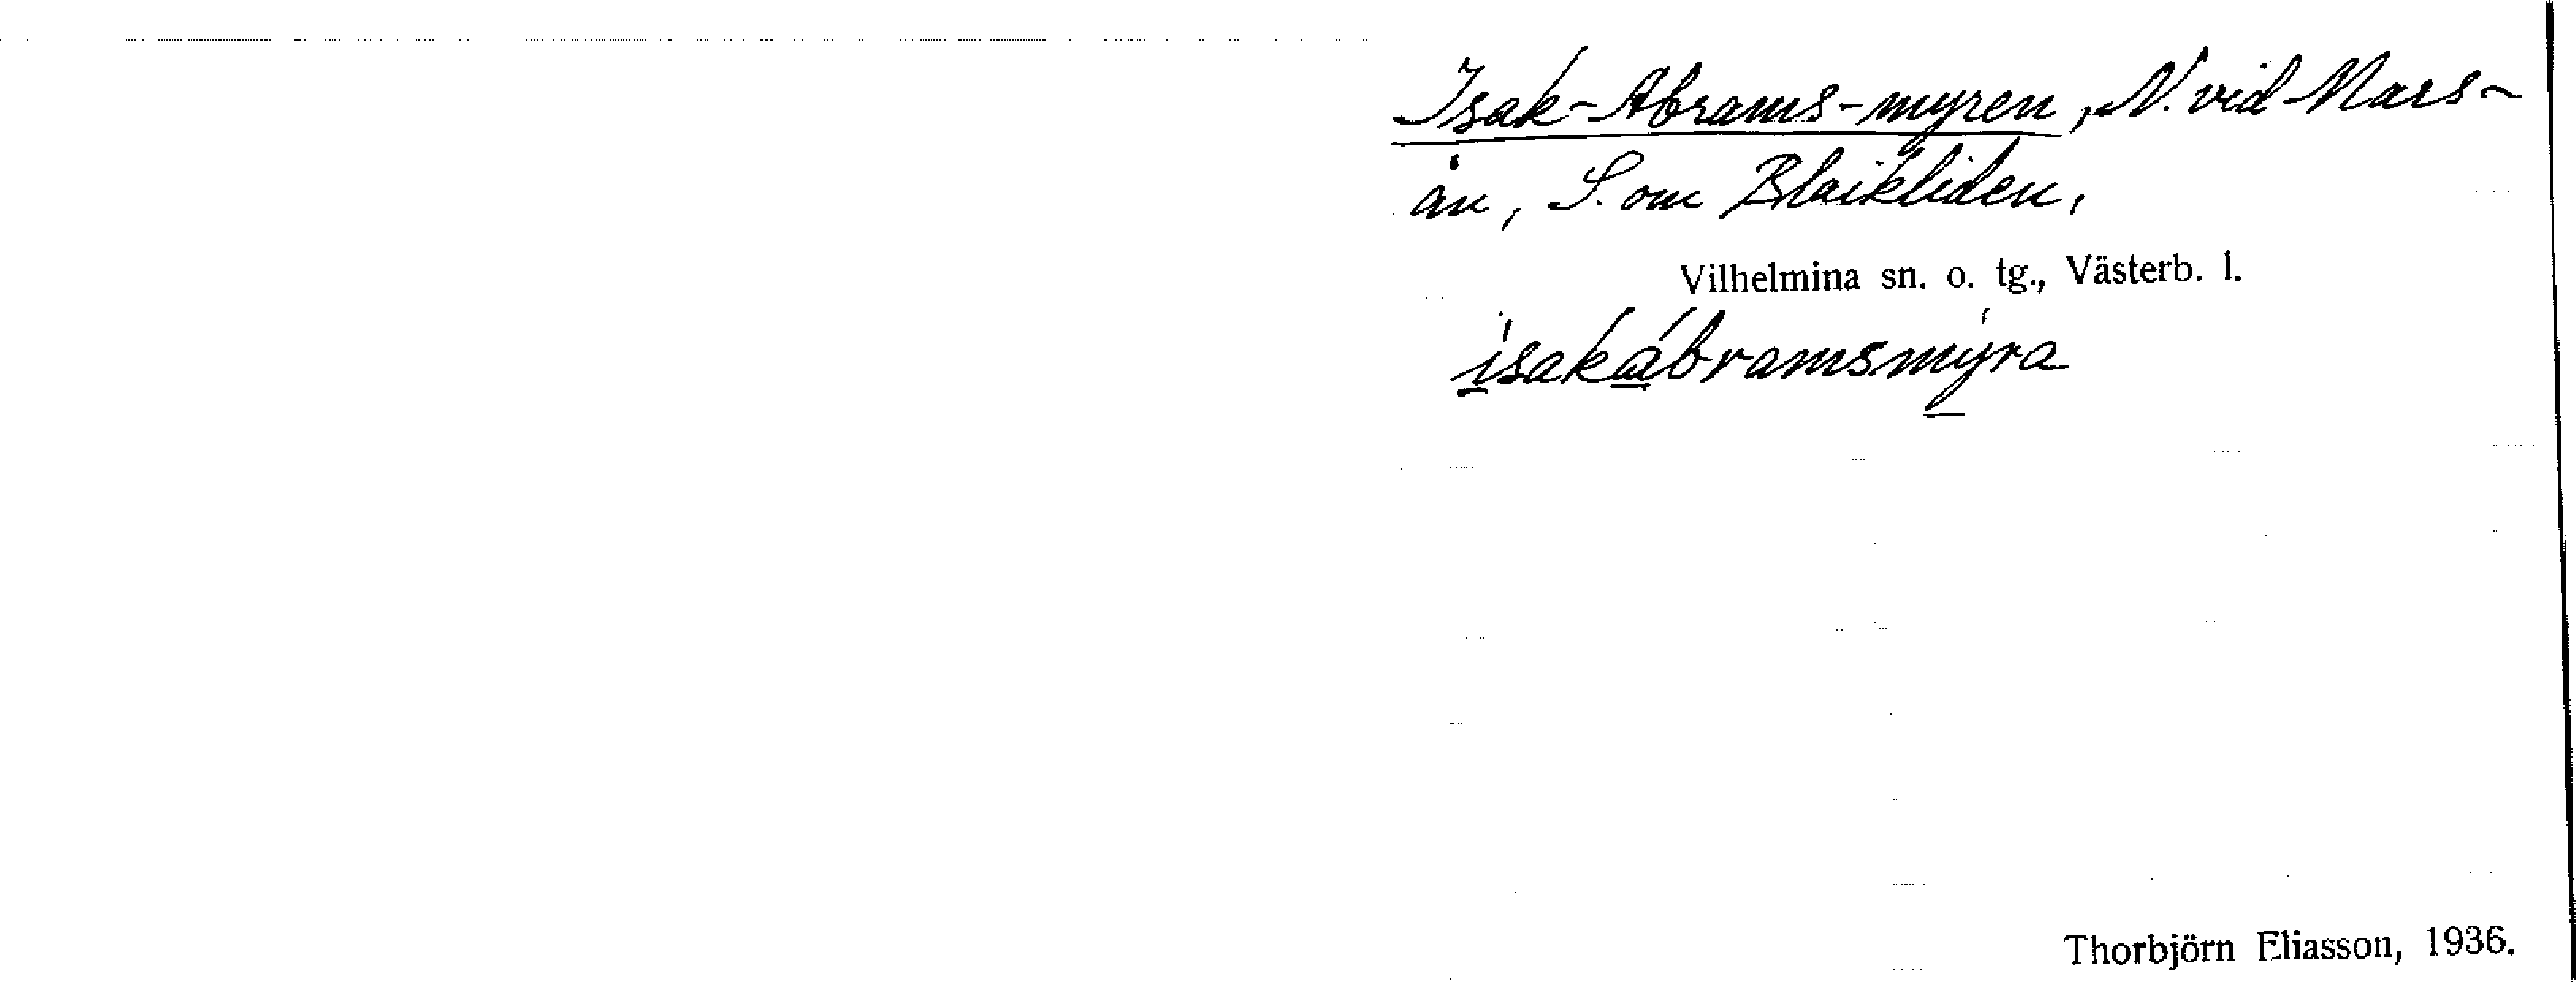 Isak-Abrams-myren, N. vid Mars-
ån, S. om Blaikliden,
Vilhelmina sn. o. tg., Västerb. l.
ísakábramsmýra
Thorbjörn Eliasson, 1936.